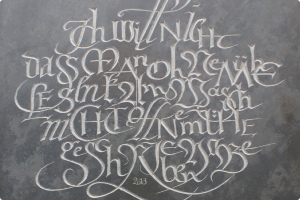 Ich will nicht
dass man ohne mühe
lesen kann was ich
nicht ohne mühe
geschrieben habe